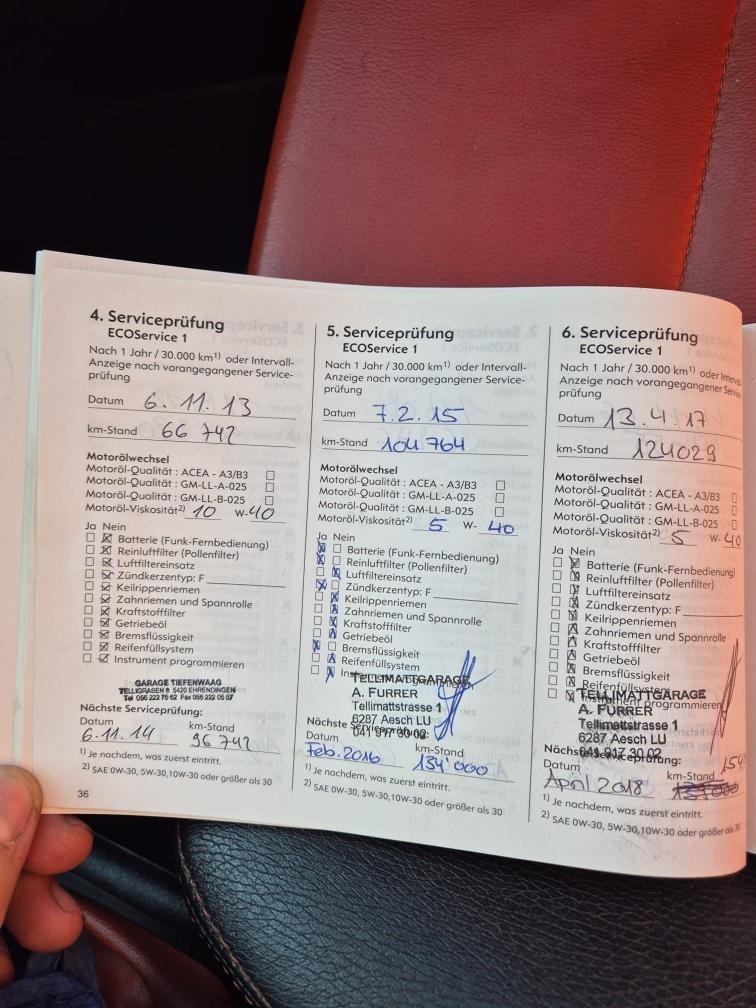 4. Serviceprüfung
ECOService 1
Nach 1 Jahr / 30.000 km¹⁾ oder Intervall-
Anzeige nach vorangegangener Service-
prüfung
Datum 6. 11. 13
km-Stand 66 742
Motorölwechsel
Motoröl-Qualität : ACEA - A3/B3
Motoröl-Qualität : GM-LL-A-025
Motoröl-Qualität : GM-LL-B-025
Motoröl-Viskosität²⁾ 10 W-40
Ja Nein
Batterie (Funk-Fernbedienung)
Reinluftfilter (Pollenfilter)
Luftfiltereinsatz
Zündkerzentyp: F
Keilrippenriemen
Zahnriemen und Spannrolle
Kraftstofffilter
Getriebeöl
Bremsflüssigkeit
Reifenfüllsystem
Instrument programmieren
GARAGE TIEFENWAAG
TELLIGRABEN 8 5420 EHRENDINGEN
Tel 056 222 75 62 Fax 056 222 05 87
Nächste Serviceprüfung:
Datum km-Stand
6.11.14 96 742
¹⁾ Je nachdem, was zuerst eintritt.
²⁾ SAE 0W-30, 5W-30,10W-30 oder größer als 30
36
5. Serviceprüfung
ECOService 1
Nach 1 Jahr / 30.000 km¹⁾ oder Intervall-
Anzeige nach vorangegangener Service-
prüfung
Datum 7.2.15
km-Stand 104 764
Motorölwechsel
Motoröl-Qualität : ACEA - A3/B3
Motoröl-Qualität : GM-LL-A-025
Motoröl-Qualität : GM-LL-B-025
Motoröl-Viskosität²⁾ 5 W- 40
Ja Nein
Batterie (Funk-Fernbedienung)
Reinluftfilter (Pollenfilter)
Luftfiltereinsatz
Zündkerzentyp: F
Keilrippenriemen
Zahnriemen und Spannrolle
Kraftstofffilter
Getriebeöl
Bremsflüssigkeit
Reifenfüllsystem
TELLIMATTGARAGE
A. FURRER
Tellimattstrasse 1
6287 Aesch LU
041 917 30 02
Nächste
Datum km-Stand
Feb. 2016 134'000
¹⁾ Je nachdem, was zuerst eintritt.
²⁾ SAE 0W-30, 5W-30,10W-30 oder größer als 30
6. Serviceprüfung
ECOService 1
Nach 1 Jahr / 30.000 km¹⁾ oder Interval
Anzeige nach vorangegangener Service
prüfung
Datum 13.4.17
km-Stand 124029
Motorölwechsel
Motoröl-Qualität : ACEA - A3/B3
Motoröl-Qualität : GM-LL-A-025
Motoröl-Qualität : GM-LL-B-025
Motoröl-Viskosität²⁾ 5 W- 40
Ja Nein
Batterie (Funk-Fernbedienung)
Reinluftfilter (Pollenfilter)
Luftfiltereinsatz
Zündkerzentyp: F
Keilrippenriemen
Zahnriemen und Spannrolle
Kraftstofffilter
Getriebeöl
Bremsflüssigkeit
Reifenfüllsystem
programmieren
TELLIMATTGARAGE
A. FURRER
Tellimattstrasse 1
6287 Aesch LU
041 917 30 02
Nächste Serviceprüfung:
Datum km-Stand
April 2018
¹⁾ Je nachdem, was zuerst eintritt.
²⁾ SAE 0W-30, 5W-30,10W-30 oder größer als 30